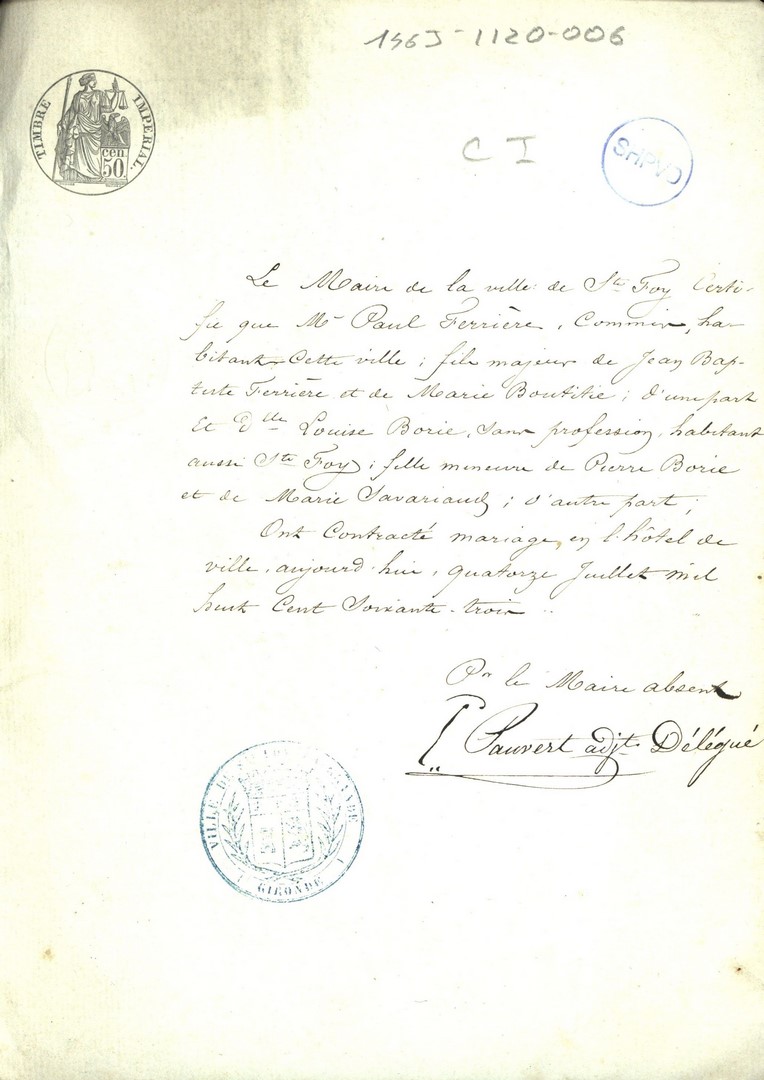 196J-1120-006
TIMBRE IMPERIAL.
cen.
50.
C I
SHPVD
Le Maire de la ville de Ste Foy Certi-
fie que Mr Paul Ferrière, Commis, ha-
bitant Cette ville ; fils majeur de Jean Bap-
tiste Ferrière et de Marie Boutitie ; d'une part
Et Dlle Louise Borie, sans profession, habitant
aussi Ste Foy ; fille mineure de Pierre Borie
et de Marie Savariaud ; d'autre part ;
Ont Contracté mariage, en l'hôtel de
ville, aujourd'hui, quatorze Juillet mil
huit Cent Soixante-trois ..
Pr le Maire absent
Pauvert adjt. Délégué
VILLE DE GRANDE
GIRONDE